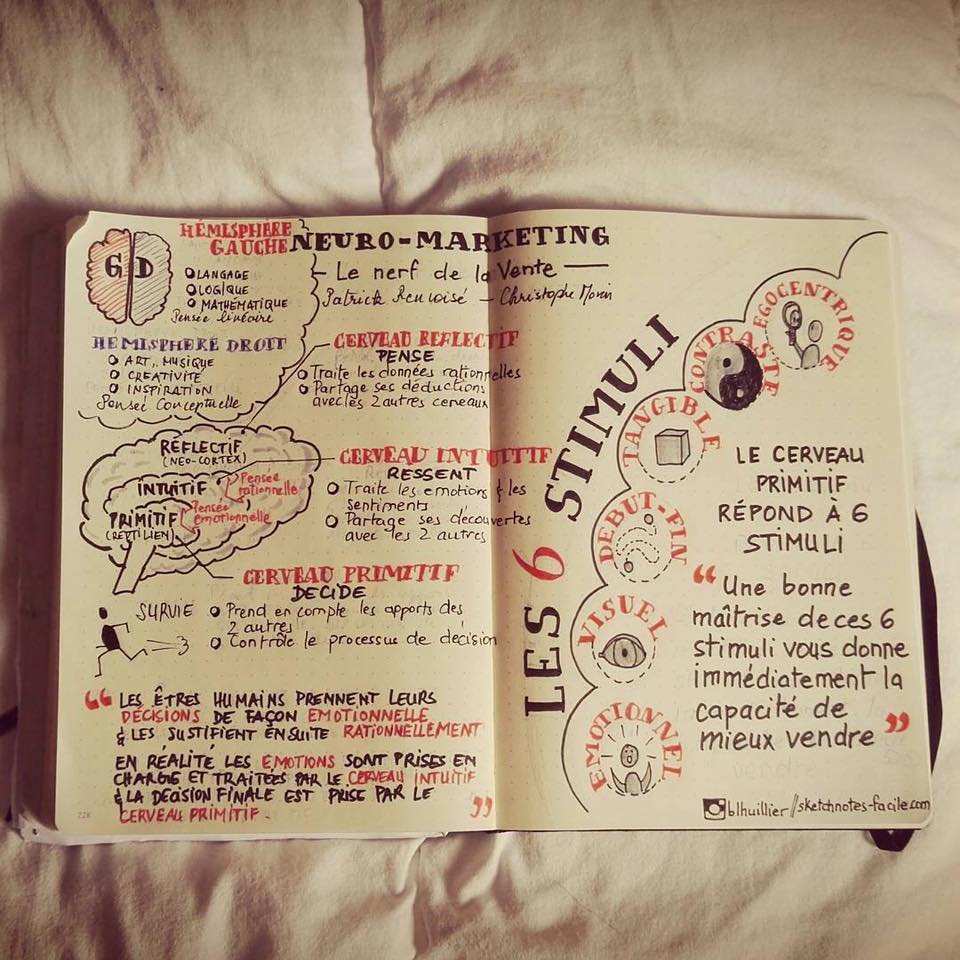 NEURO-MARKETING
Le nerf de la Vente
Patrick Renvoisé - Christophe Morin
HÉMISPHÈRE
GAUCHE
G D
LANGAGE
LOGIQUE
MATHÉMATIQUE
Pensée linéaire
HEMISPHERE DROIT
ART, MUSIQUE
CREATIVITÉ
INSPIRATION
Pensée Conceptuelle
CERVEAU REFLECTIF
PENSE
Traite les données rationnelles
Partage ses déductions
avec les 2 autres cerveaux
RÉFLECTIF
(NEO-CORTEX)
INTUITIF
Pensée
rationnelle
PRIMITIF
(REPTILIEN)
Pensée
emotionnelle
CERVEAU INTUITIF
RESSENT
Traite les emotions & les
sentiments
Partage ses découvertes
avec les 2 autres
CERVEAU PRIMITIF
DECIDE
SURVIE
Prend en compte les apports des
2 autres
Contrôle le processus de décision
“ LES ÊTRES HUMAINS PRENNENT LEURS
DÉCISIONS DE FAÇON EMOTIONNELLE
& LES JUSTIFIENT ENSUITE RATIONNELLEMENT
EN RÉALITE LES EMOTIONS SONT PRISES EN
CHARGE ET TRAITEES PAR LE CERVEAU INTUITIF
& LA DECISION FINALE EST PRISE PAR LE
CERVEAU PRIMITIF. ”
LES 6 STIMULI
EGOCENTRIQUE
CONTRASTE
TANGIBLE
DEBUT-FIN
VISUEL
EMOTIONNEL
LE CERVEAU
PRIMITIF
RÉPOND À 6
STIMULI
“ Une bonne
maîtrise de ces 6
stimuli vous donne
immédiatement la
capacité de
mieux vendre ”
blhuillier//sketchnotes-facile.com